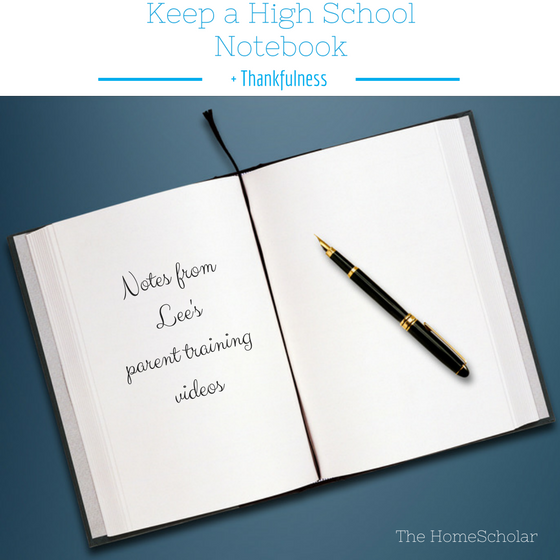 Keep a High School
Notebook
+ Thankfulness
Notes from
Lee's
parent training
videos
The HomeScholar